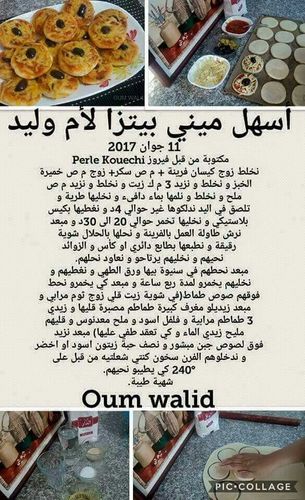 OUM WALID
اسهل ميني بيتزا لأم وليد
11 جوان 2017
مكتوبة من قبل فيروز Perle Kouechi
نخلط زوج كيسان فرينة + م ص سكر+ زوج م ص خميرة
الخبز و نخلط و نزيد 3 م ك زيت و نخلط و نزيد م ص
ملح و نخلط و نلمها بماء دافىء و نخليها طرية و
تلصق في اليد ندلكوها غير حوالي 4د و نغطيها بكيس
بلاستيكي و نخليها تخمر حوالي 20 الى 30د و مبعد
نرش طاولة العمل بالفرينة و نحلها بالحلال شوية
رقيقة و نطبعها بطابع دائري او كأس و الزوائد
نحيهم و نخليهم يرتاحو و نعاود نحلهم.
مبعد نحطهم في سنيوة بيها ورق الطهي و نغطيهم و
نخليهم يخمرو لمدة ربع ساعة و مبعد كي يخمرو نحط
فوقهم صوص طماط(في شوية زيت قلي زوج ثوم مرابي و
مبعد زيديلو مغرف كبيرة طماطم مصبرة قليها و زيدي
3 طماطم مرابية و فلفل اسود و ملح معدنوس و قليهم
مليح زيدي الماء و كي تعقد طفي عليها) مبعد نزيد
فوق لصوص جبن مبشور و نصف حبة زيتون اسود او اخضر
و ندخلوهم الفرن سخون كنتي شعلتيه من قبل على
240° كي يطيبو نحيهم.
شهية طيبة.
Oum walid
PIC•COLLAGE